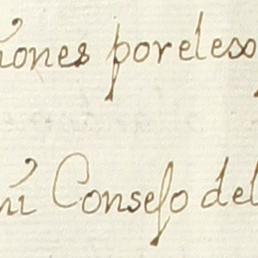 iones por el ex
mi Consejo del